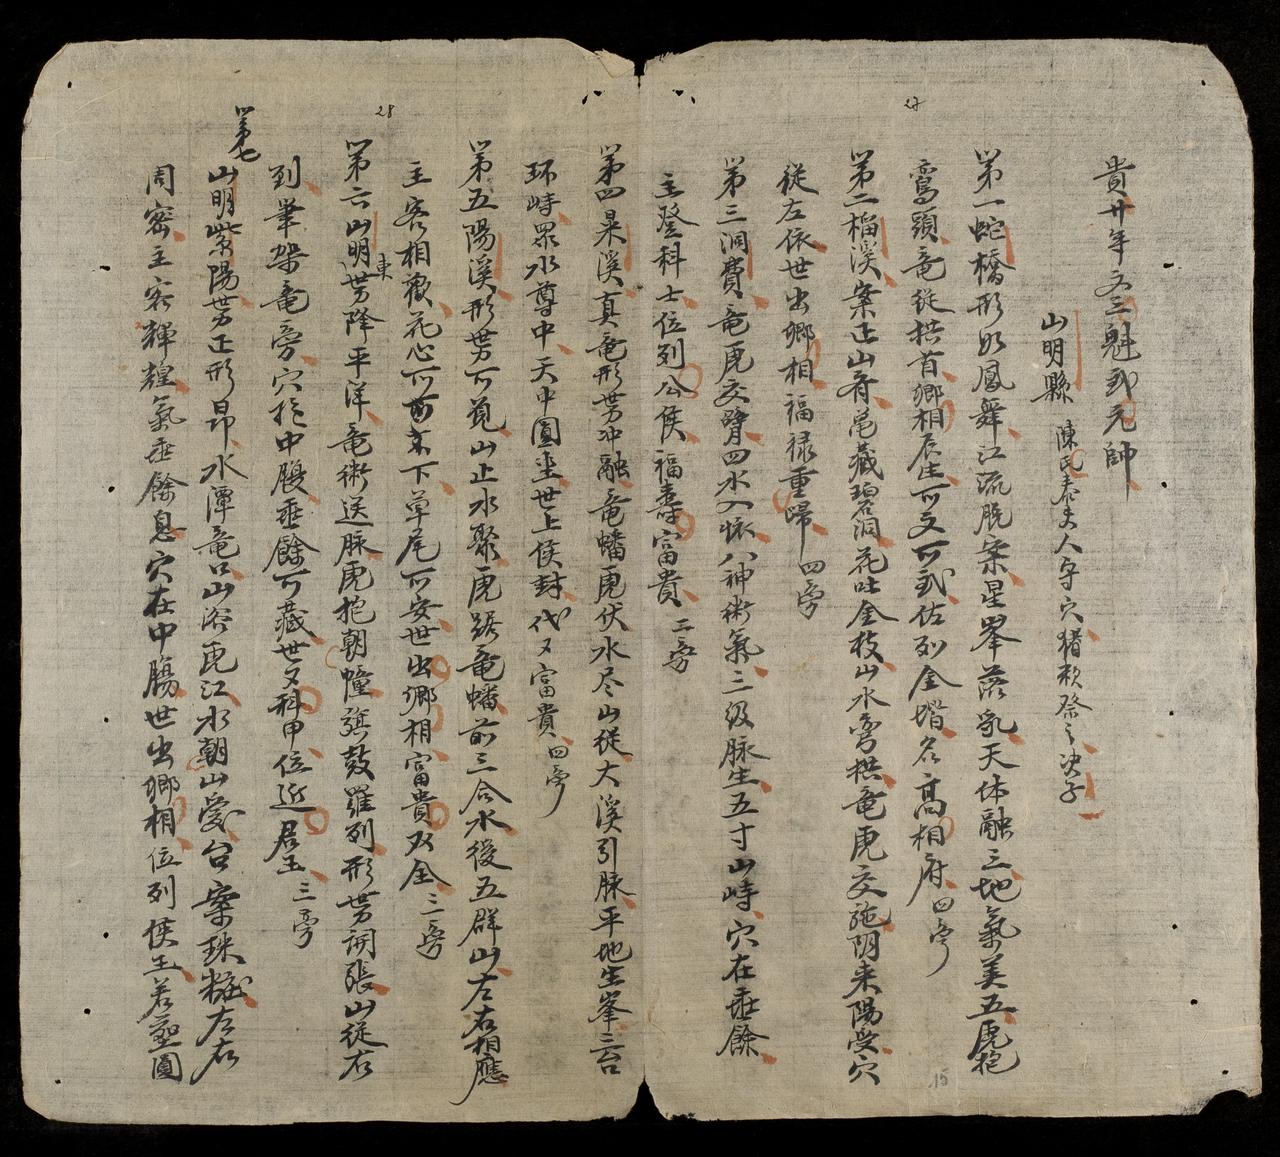 27
貴廿年又三魁武元帥
山明縣 陳氏泰夫人字穴猪秋祭之决子
第一蛇橋形如鳳舞江流脱案星峯落乳天体融三地氣美五虎抱
鸞頭竜從拱首鄉相辰生可文可武佐列金堦名高相府 四旁
第二榴溪案正山奇亀藏碧洞花吐金枝山水旁拱竜虎交施阴来陽受穴
從左依世出鄉相福禄重歸 四旁
第三洞費竜虎交臂四水入懷八神術氣三级脉生五寸山峙穴在垂餘
主登科士位列公侯福壽富貴 二旁
第四杲溪真竜形势冲融竜蟠虎伏水尽山従大溪引脉平地生峯三台
环峙眾水尊中天中圓坐世上侯封代又富貴 四旁
28
第五陽溪形势可覔山止水聚虎踞竜蟠前三合水後五群山左右相應
主客相歡花心可前下草尾可安世出鄉相富貴双全 三旁
第六山明東势降平洋竜術送脉虎抱朝幢旗鼓羅列形势開張山從右
到筆架竜旁穴於中腰垂餘可藏世夕科甲位近君王 三旁
第七
山明紫陽势正形昂水潭竜口山浴虎江水朝山愛台案珠粧左右
周密主客輝煌氣垂餘息穴在中腸世出鄉相位列侯王若葬圓
15